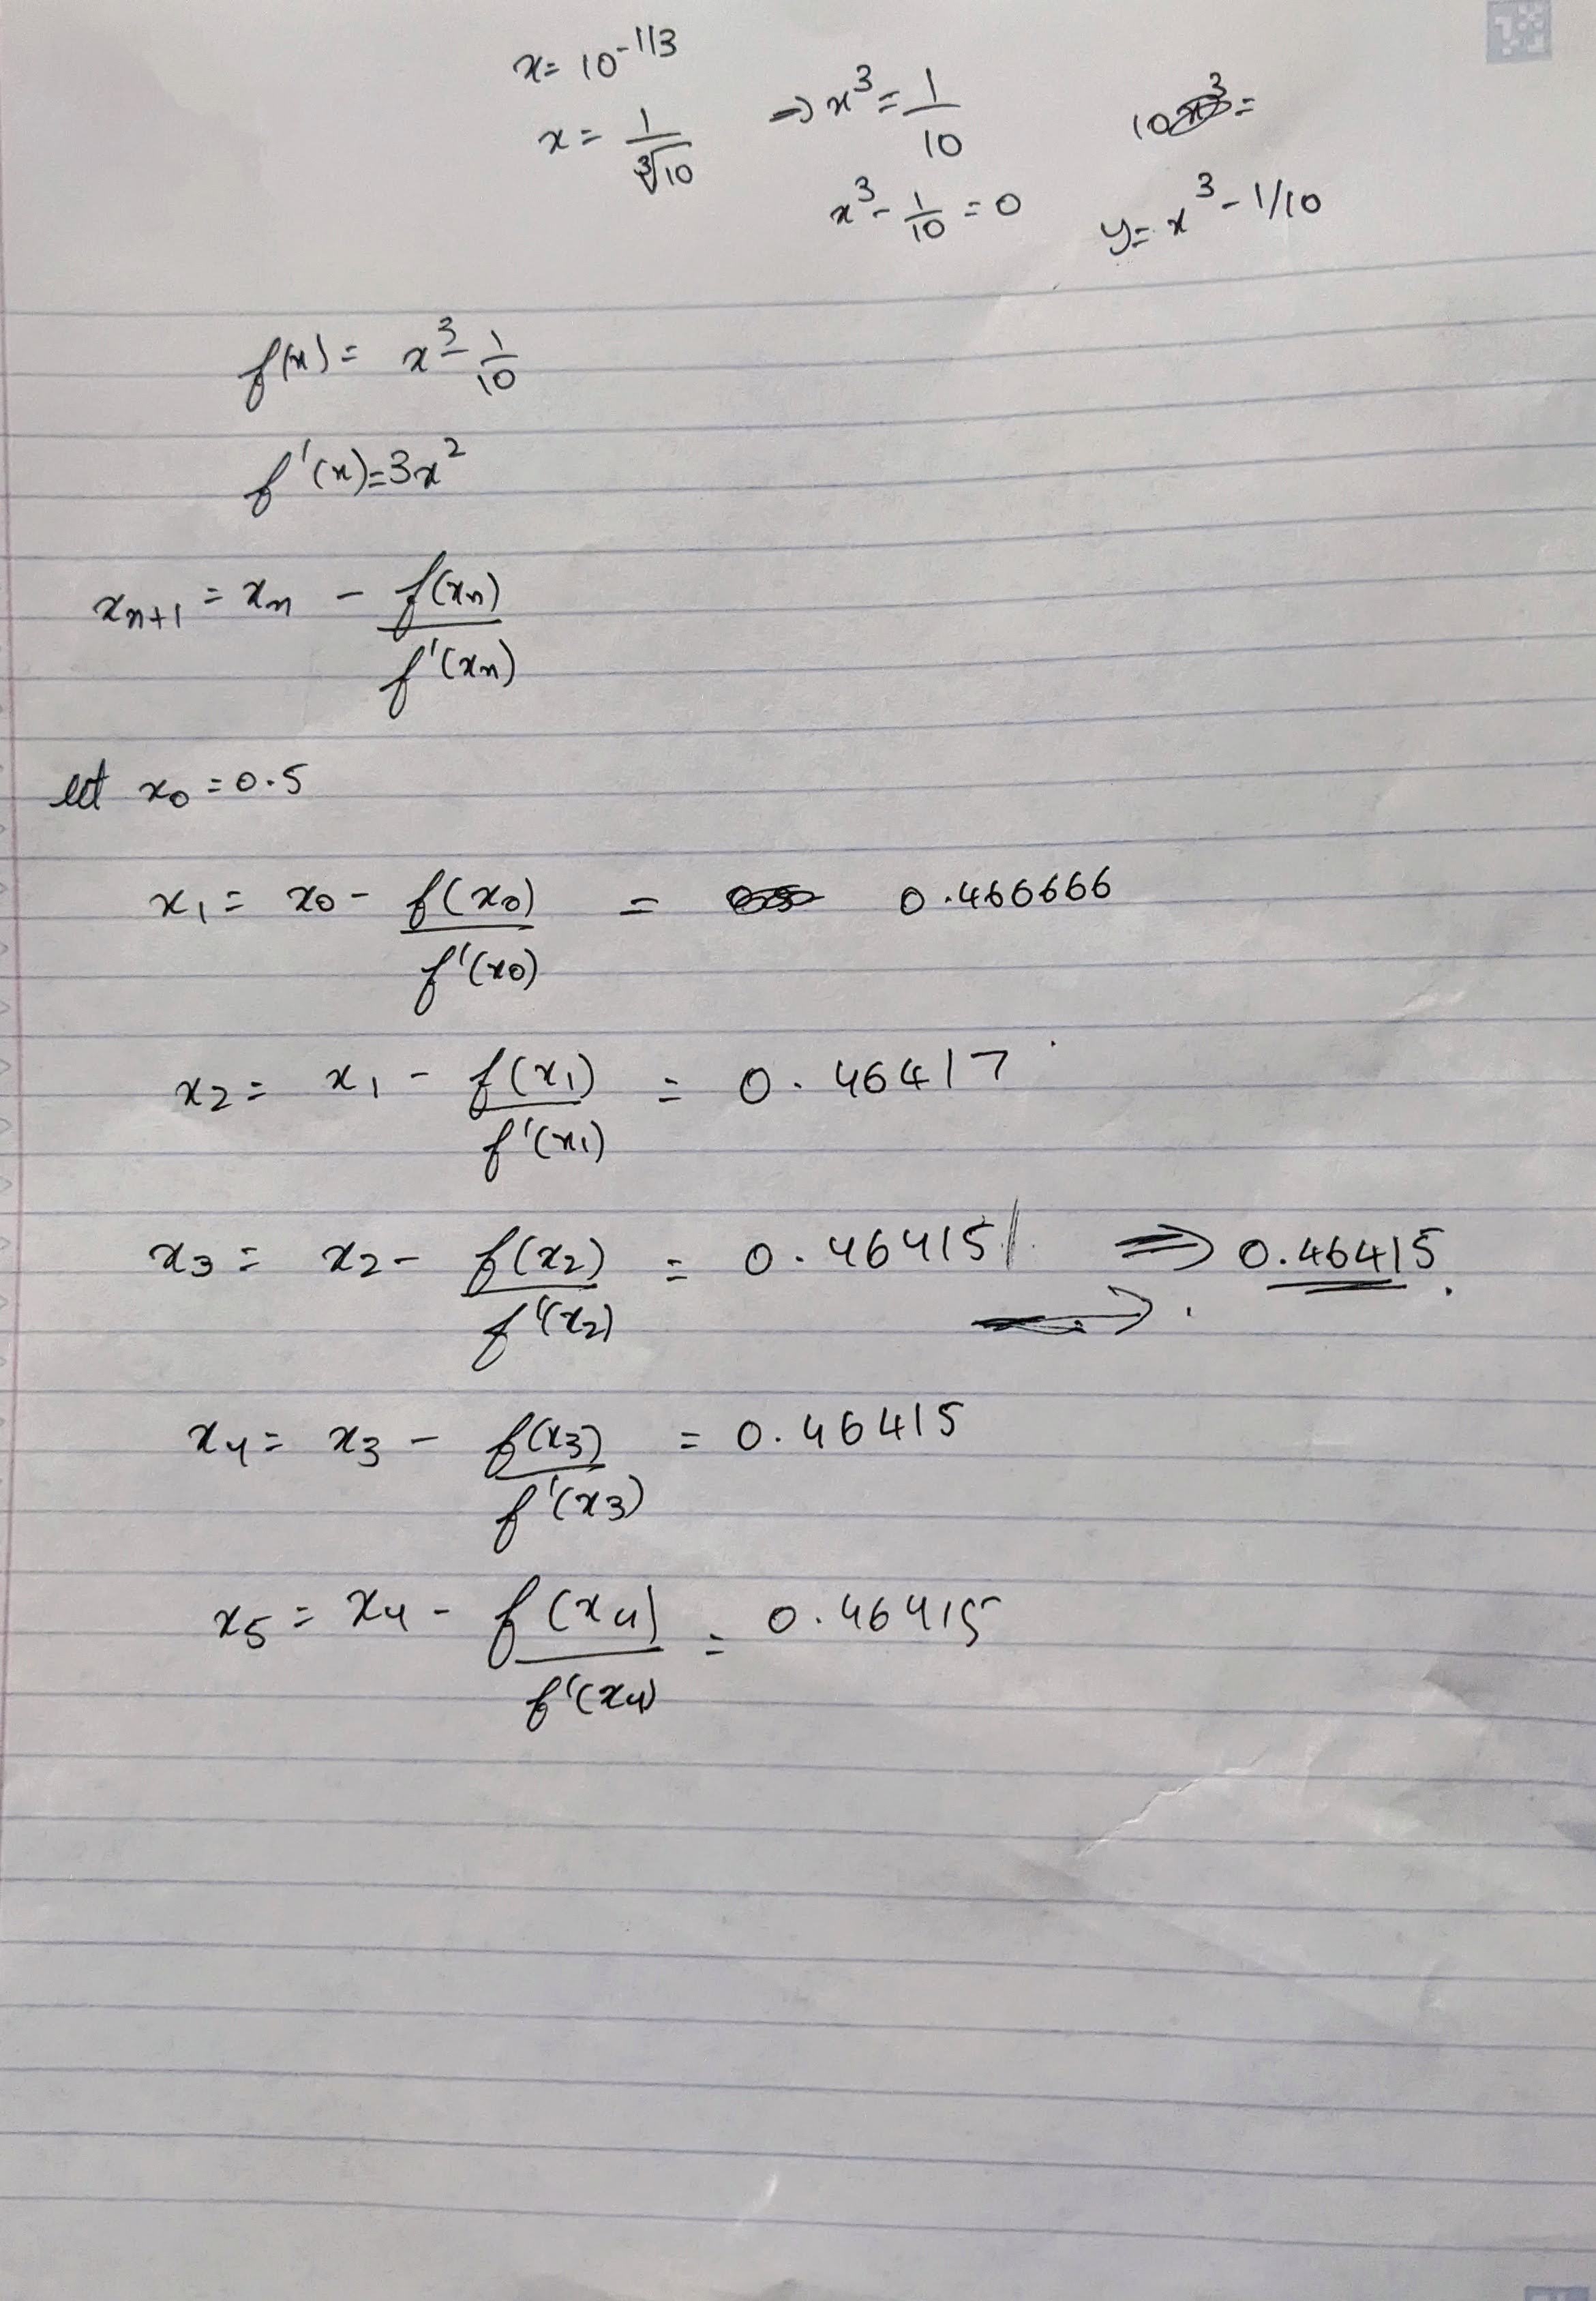 x = 10^-1/3
x = 1/∛10 => x³ = 1/10 10x³ =
x³ - 1/10 = 0 y = x³ - 1/10
f(x) = x³ - 1/10
f'(x) = 3x²
xn+1 = xn - f(xn)/f'(xn)
let x0 = 0.5
x1 = x0 - f(x0)/f'(x0) = 0.466666
x2 = x1 - f(x1)/f'(x1) = 0.46417
x3 = x2 - f(x2)/f'(x2) = 0.46415 => 0.46415.
x4 = x3 - f(x3)/f'(x3) = 0.46415
x5 = x4 - f(x4)/f'(x4) = 0.46415